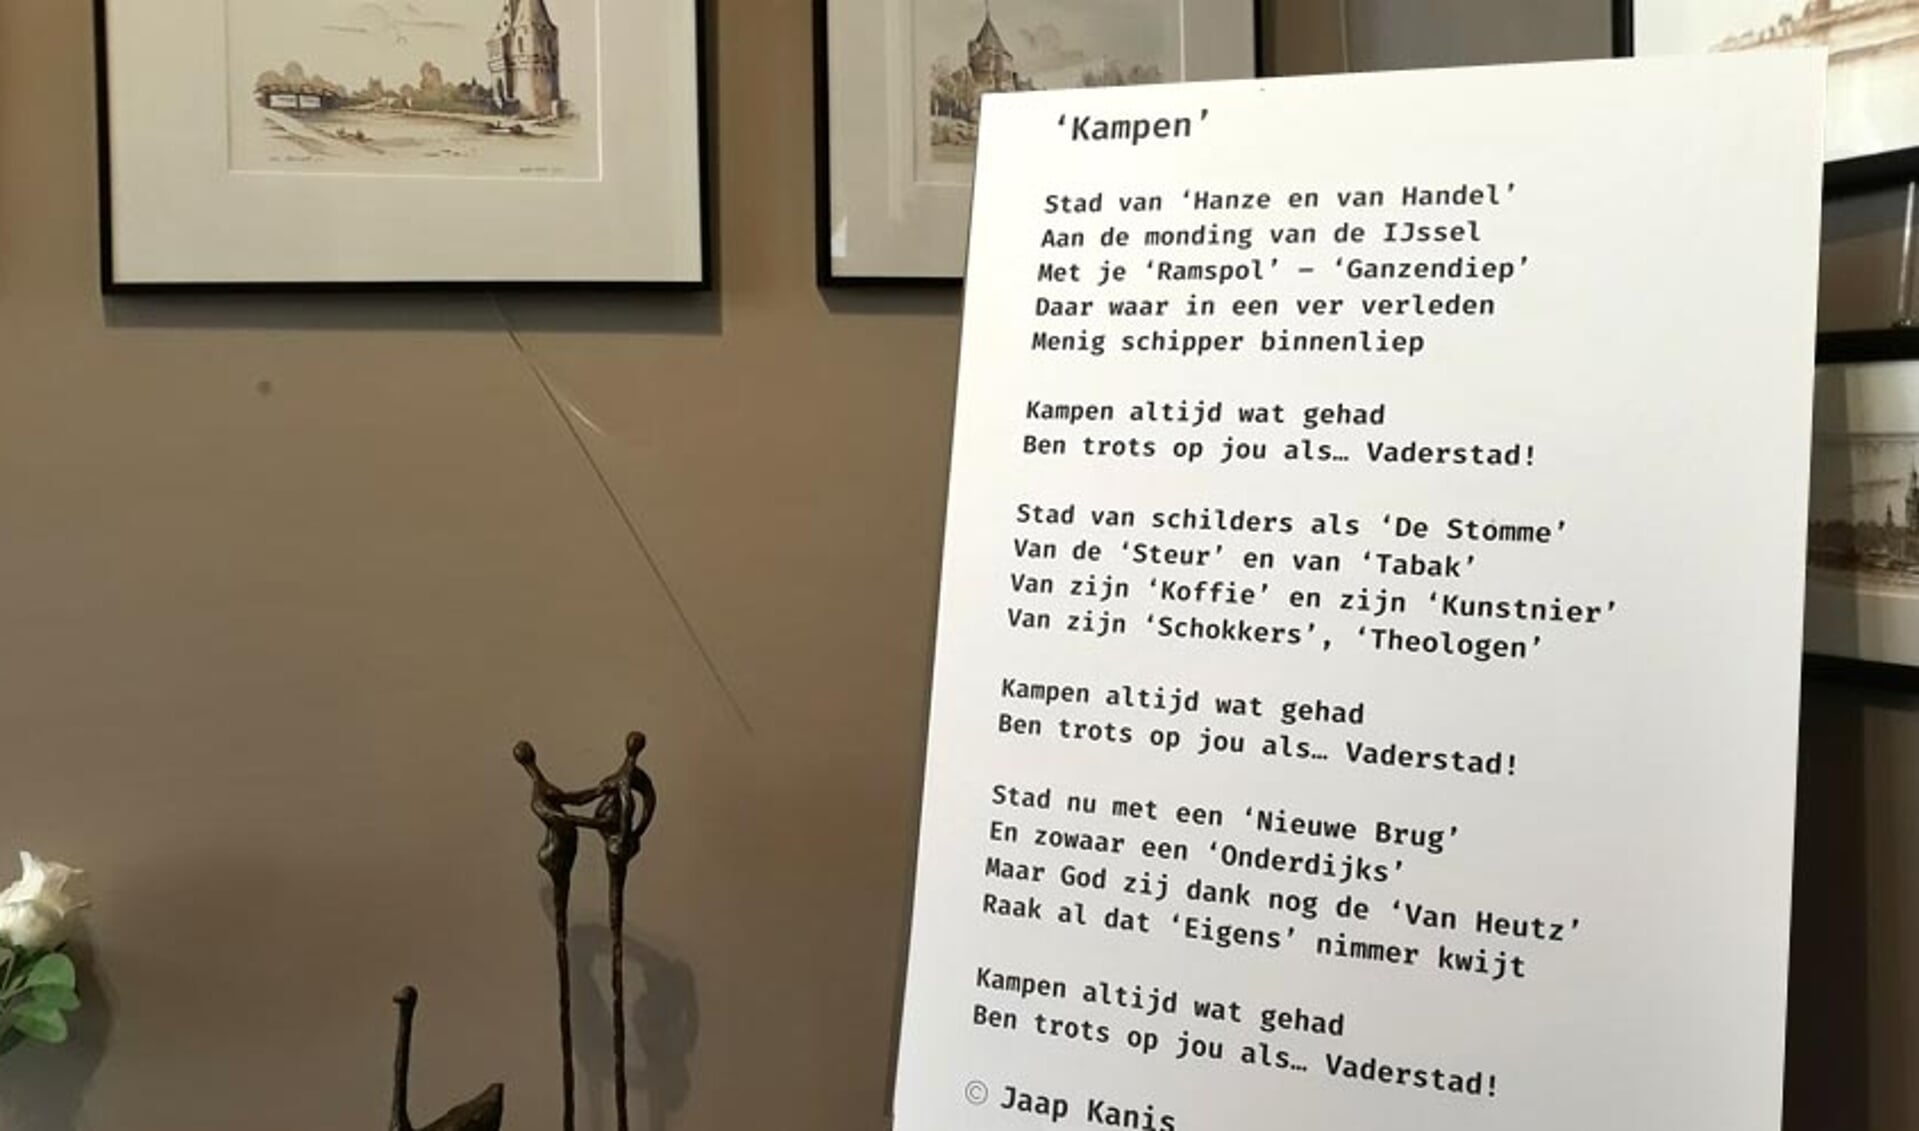 ‘Kampen’
Stad van ‘Hanze en van Handel’
Aan de monding van de IJssel
Met je ‘Ramspol’ – ‘Ganzendiep’
Daar waar in een ver verleden
Menig schipper binnenliep
Kampen altijd wat gehad
Ben trots op jou als… Vaderstad!
Stad van schilders als ‘De Stomme’
Van de ‘Steur’ en van ‘Tabak’
Van zijn ‘Koffie’ en zijn ‘Kunstnier’
Van zijn ‘Schokkers’, ‘Theologen’
Kampen altijd wat gehad
Ben trots op jou als… Vaderstad!
Stad nu met een ‘Nieuwe Brug’
En zowaar een ‘Onderdijks’
Maar God zij dank nog de ‘Van Heutz’
Raak al dat ‘Eigens’ nimmer kwijt
Kampen altijd wat gehad
Ben trots op jou als… Vaderstad!
© Jaap Kanis